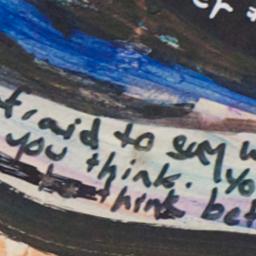 fraid to say w
you think. Yo
to think bet